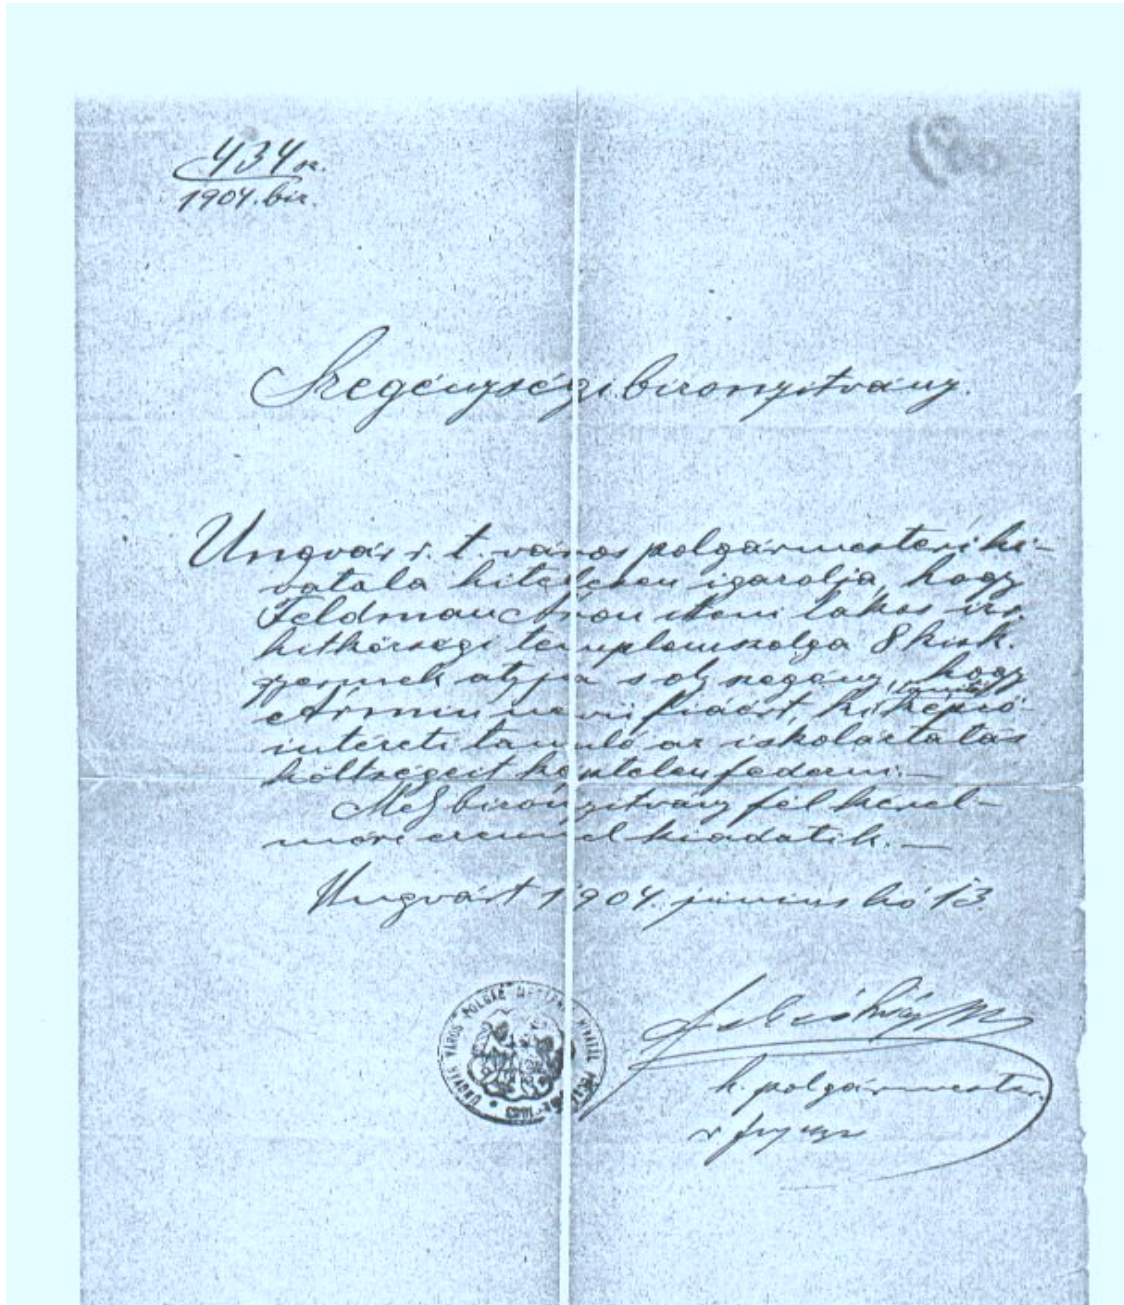 434 sz.
1904. biz.
Szegénységi bizonyitvány.
Ungvár r. t. város polgármesteri hi-
vatala hitelesen igazolja, hogy
Feldman Áron itteni lakos izr.
hitközségi templomszolga 8 kisk.
gyermek atyja s oly szegény, hogy
Ármin nevü fiáért, ki képző
tanitó
intézeti tanuló az iskoláztatás
költségeit képtelen fedezni.—
Mely bizonyitvány fél kérel-
mére ezennel kiadatik.—
Ungvárt 1904. junius hó 13.
UNGVÁR VÁROS POLGÁRMESTERI HIVATAL
h. polgármester.